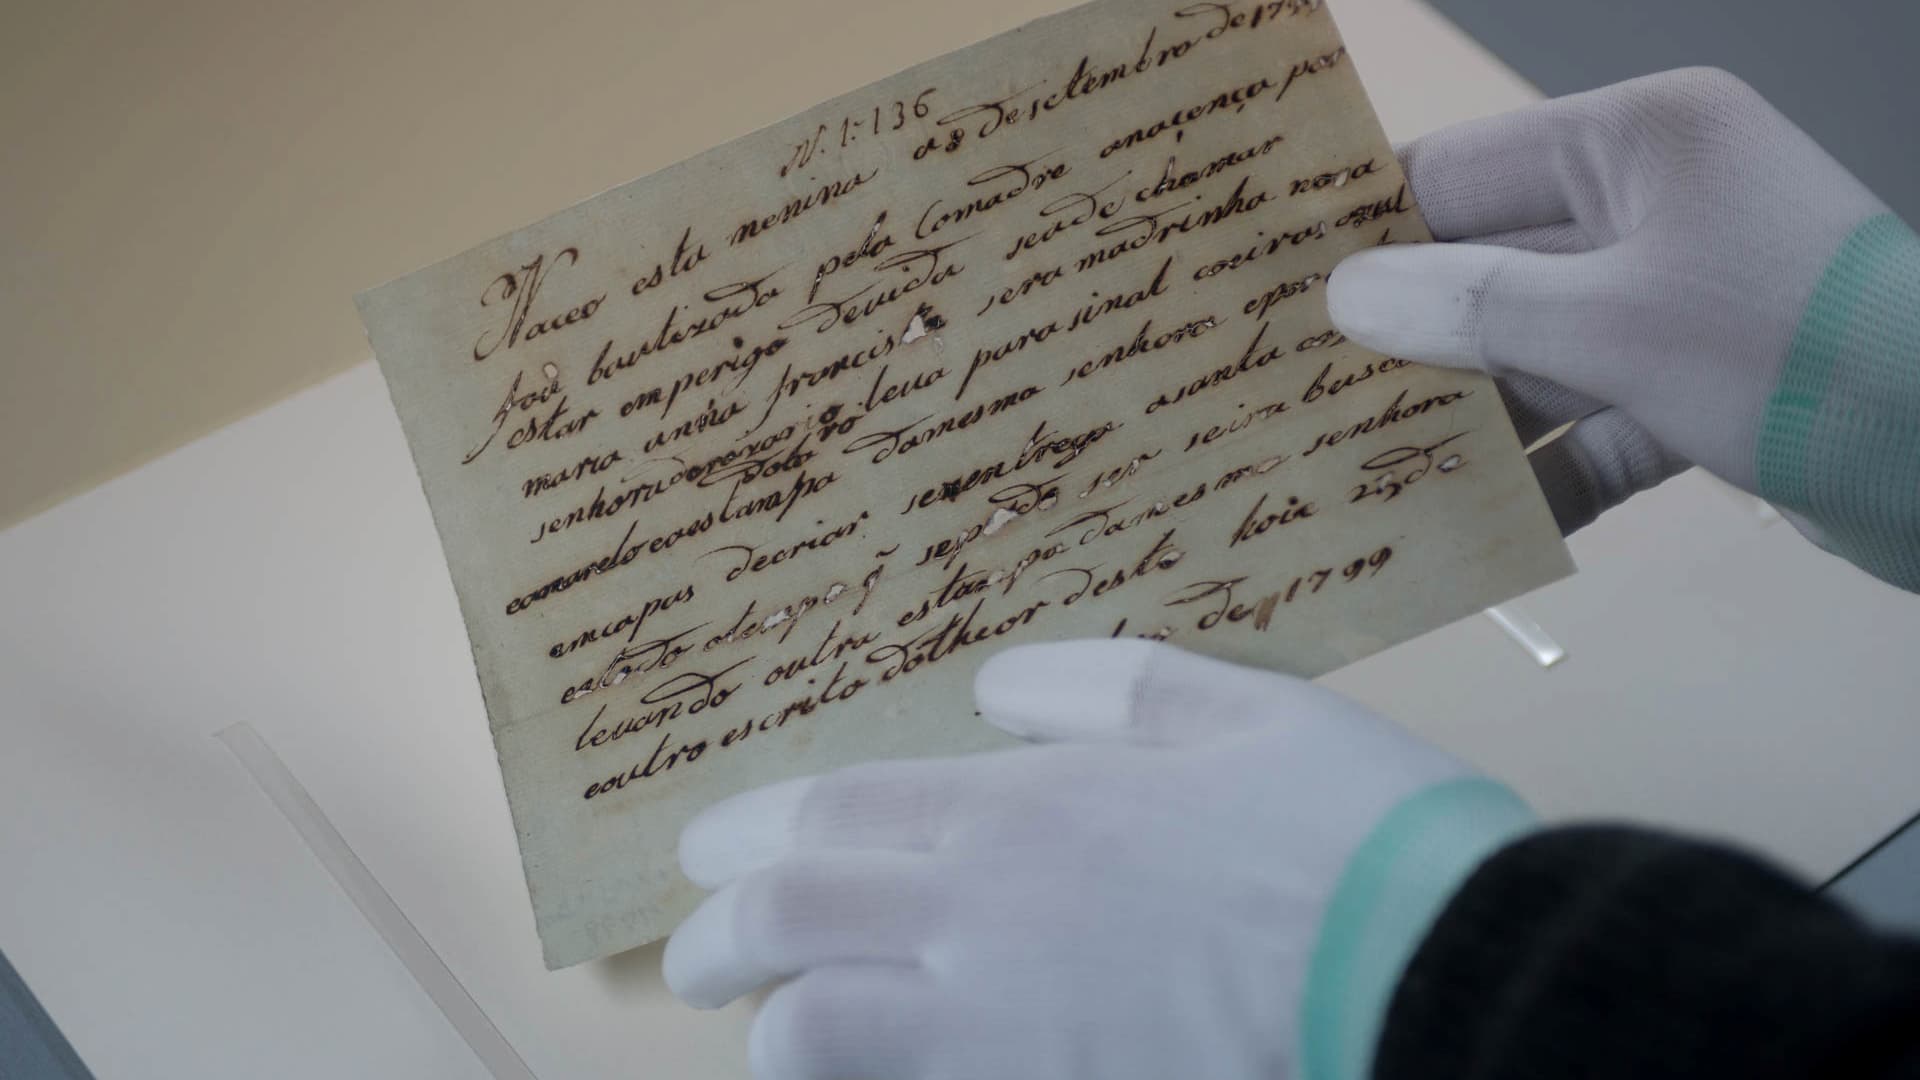 N. 1:136
Naceo esta menina a 8 de setembro de 1799
foi bautizada pela Comadre anaçença por
estar emperigo deuida seade chamar
maria anna francisca sera madrinha nosa
senhora dorozario leua para sinal coeiros azul
dotoro
eamarelo coaestampa damesma senhora epor
emcapas decriar seentrega asanta
estado otempo q̃ sepode ser seira busca
leuando outra estampa damesma senhora
eoutro escrito dotheor deste hoie 23 de
de 1799